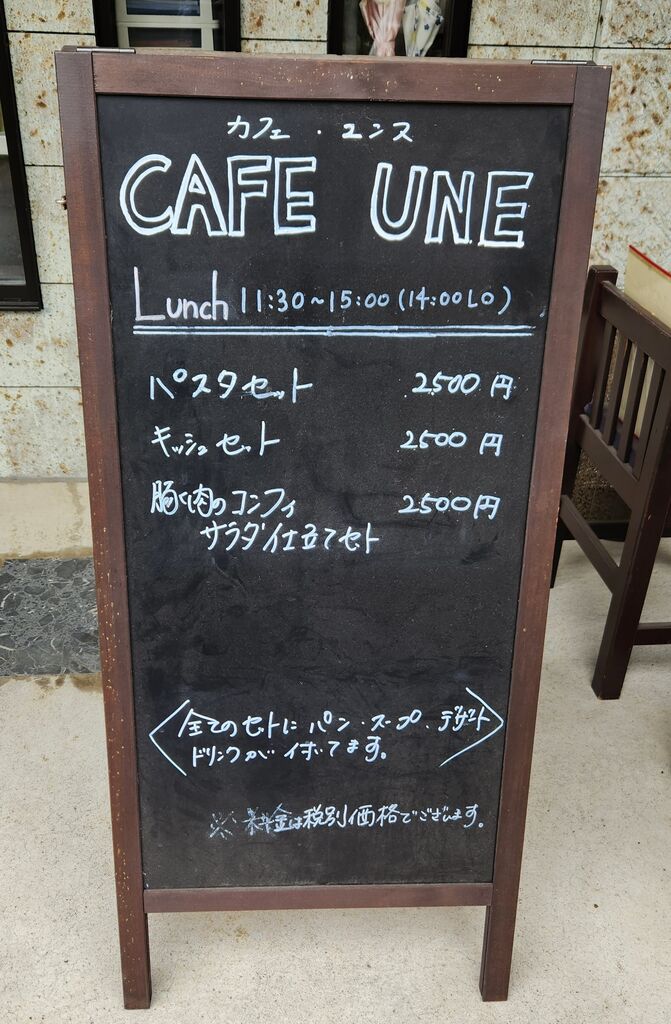 カフェ・ユンヌ
CAFE UNE
Lunch 11:30~15:00(14:00LO)
パスタセット 2500円
キッシュセット 2500円
豚く肉のコンフィ 2500円
サラダ仕立てセット
全てのセットにパン・スープ、デザート
ドリンクが付いてます。
※料金は税別価格でございます。